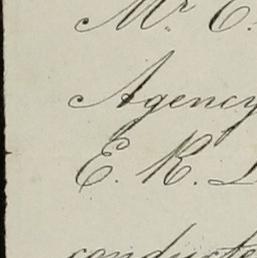 Mr C.
Agency
E. R. L
conducte